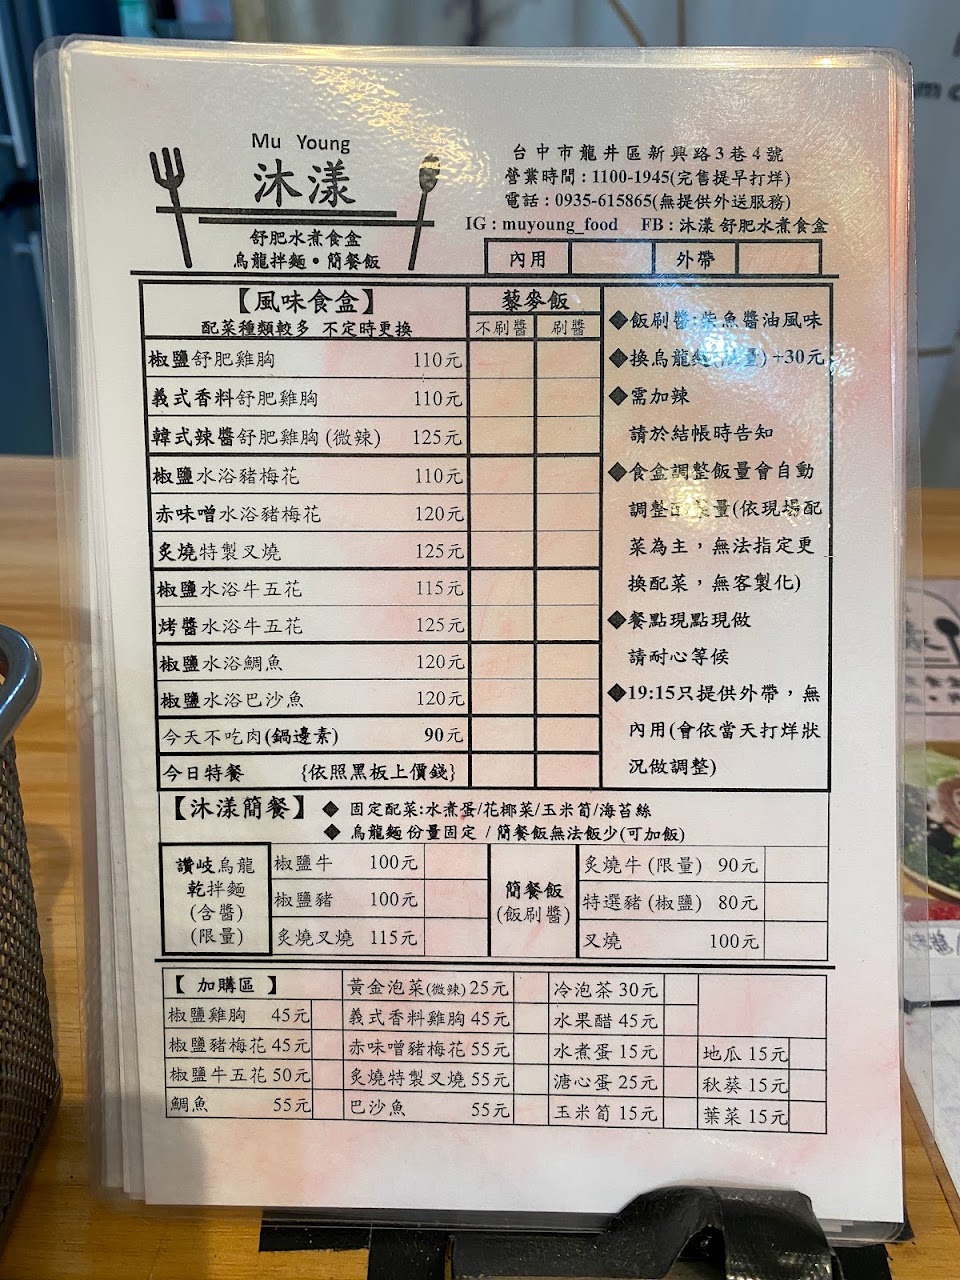 Mu Young
沐漾
舒肥水煮食盒
烏龍拌麵•簡餐飯
台中市龍井區新興路3巷4號
營業時間:1100-1945(完售提早打烊)
電話:0935-615865(無提供外送服務)
IG:muyoung_food FB:沐漾 舒肥水煮食盒
內用 外帶
【風味食盒】
配菜種類較多 不定時更換
藜麥飯
不刷醬 刷醬
椒鹽舒肥雞胸 110元
義式香料舒肥雞胸 110元
韓式辣醬舒肥雞胸(微辣) 125元
椒鹽水浴豬梅花 110元
赤味噌水浴豬梅花 120元
炙燒特製叉燒 125元
椒鹽水浴牛五花 115元
烤醬水浴牛五花 125元
椒鹽水浴鯛魚 120元
椒鹽水浴巴沙魚 120元
今天不吃肉(鍋邊素) 90元
今日特餐 {依照黑板上價錢}
◆飯刷醬:柴魚醬油風味
◆換烏龍麵(限量)+30元
◆需加辣
請於結帳時告知
◆食盒調整飯量會自動
調整 量(依現場配
菜為主,無法指定更
換配菜,無客製化)
◆餐點現點現做
請耐心等候
◆19:15只提供外帶,無
內用(會依當天打烊狀
況做調整)
【沐漾簡餐】 ◆ 固定配菜:水煮蛋/花椰菜/玉米筍/海苔絲
◆ 烏龍麵份量固定 / 簡餐飯無法飯少(可加飯)
讚岐烏龍
乾拌麵
(含醬)
(限量)
椒鹽牛 100元
椒鹽豬 100元
炙燒叉燒 115元
簡餐飯
(飯刷醬)
炙燒牛(限量) 90元
特選豬(椒鹽) 80元
叉燒 100元
【 加購區 】 黃金泡菜(微辣)25元 冷泡茶 30元
椒鹽雞胸 45元 義式香料雞胸 45元 水果醋 45元
椒鹽豬梅花 45元 赤味噌豬梅花 55元 水煮蛋 15元 地瓜 15元
椒鹽牛五花 50元 炙燒特製叉燒 55元 溏心蛋 25元 秋葵 15元
鯛魚 55元 巴沙魚 55元 玉米筍 15元 葉菜 15元